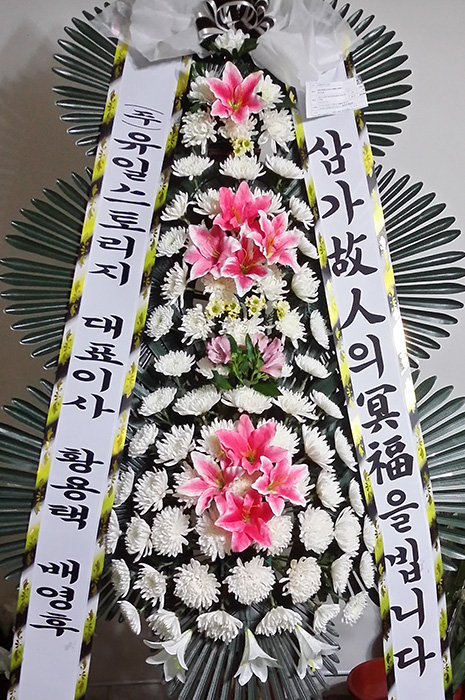 (주)유일스토리지 대표이사 황용택 배영후
삼가故人의冥福을빕니다